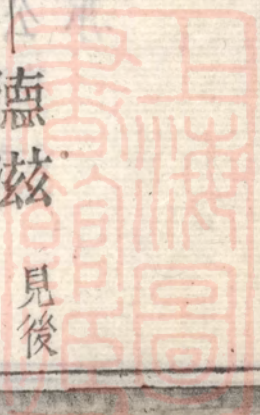 德滋
見後
上海圖書館藏